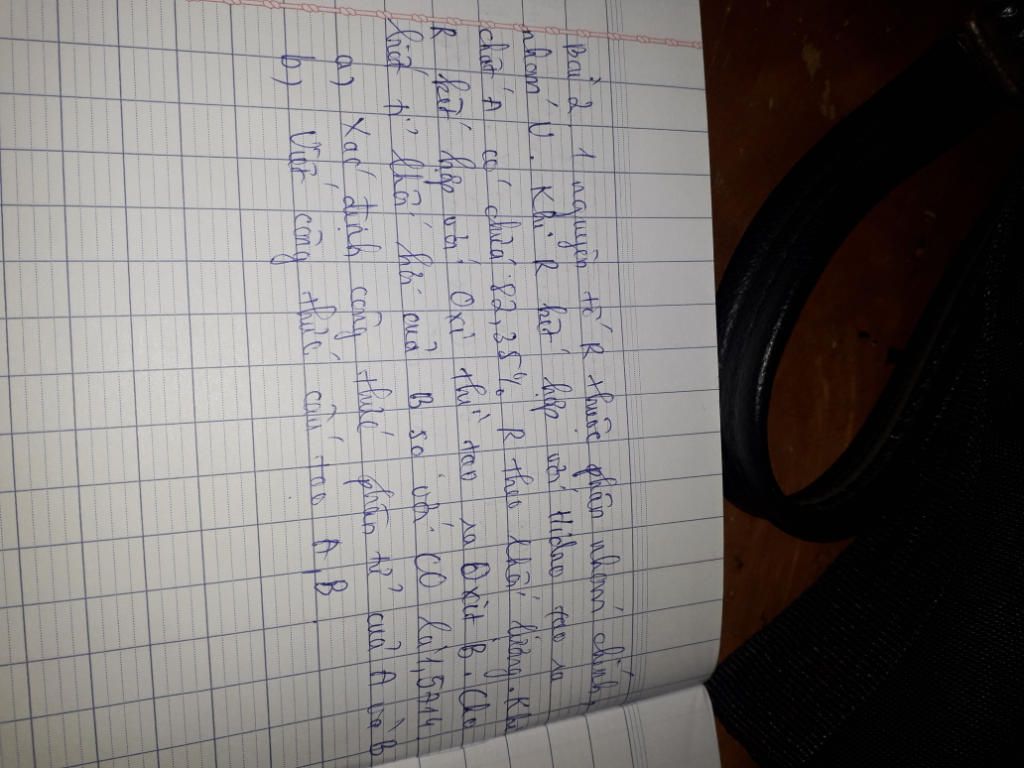 Bài 2 1 nguyên tố R thuộc phân nhóm chính
nhóm V. Khi R kết hợp với Hidro tạo ra
chất A có chứa 82,35% R theo khối lượng. Khi
R kết hợp với Oxi thì tạo ra Oxit B. Cho
biết tỉ khối hơi của B so với CO là 1,5714
a) Xác định công thức phân tử của A và B
b) Viết công thức cấu tạo A, B